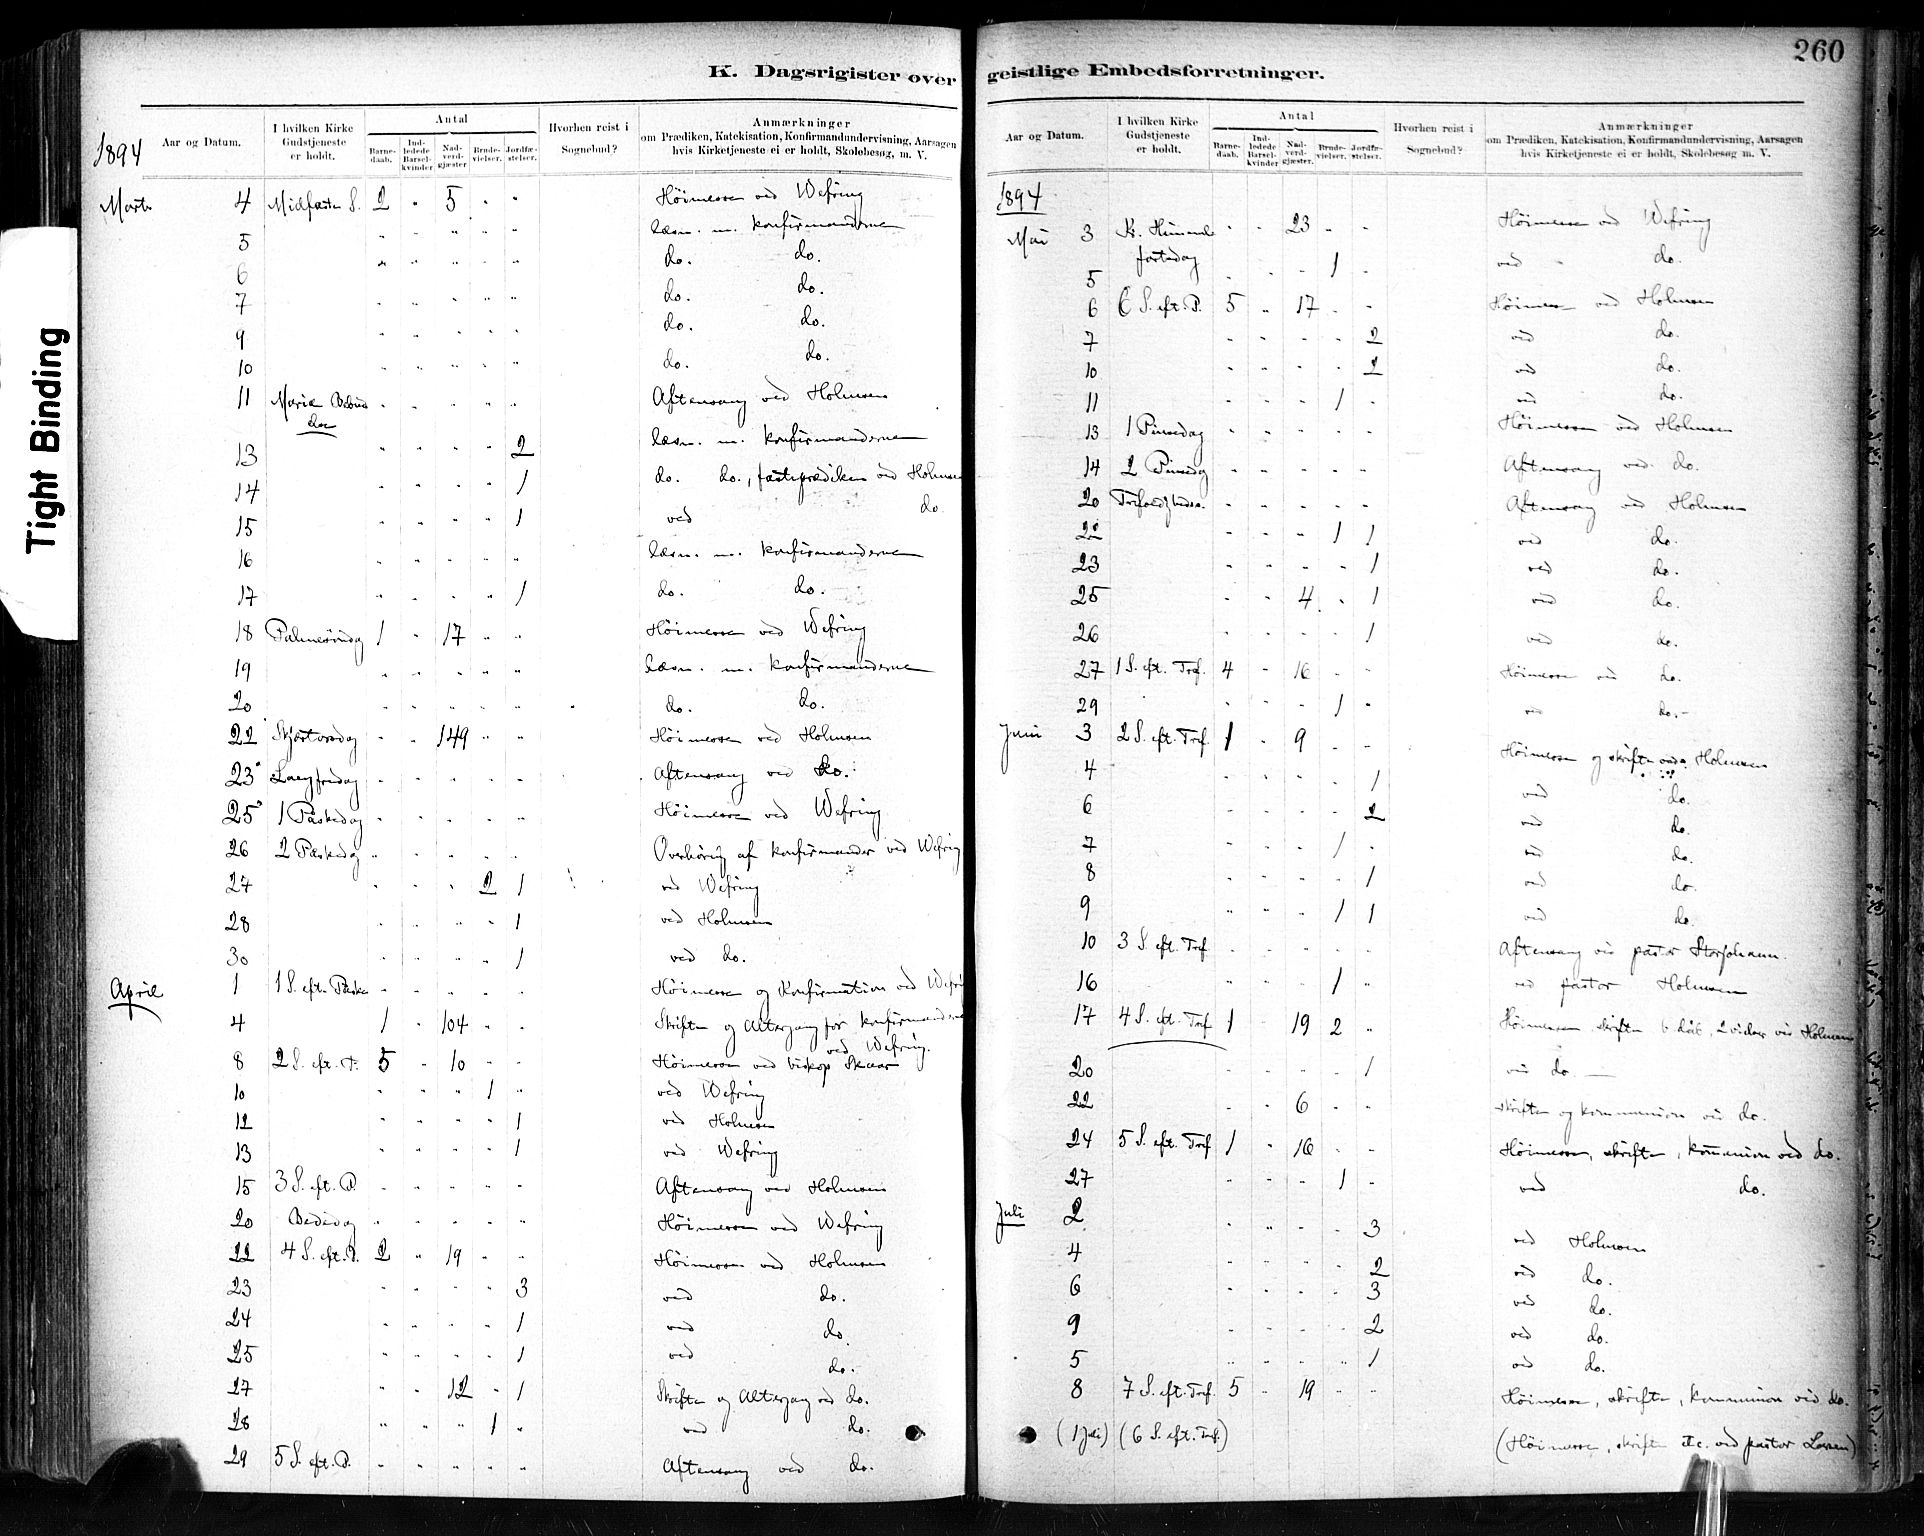 260
K. Dagsrigister over geistlige Embedsforretninger.
Tight Binding
1894
Aar og Datum.
I hvilken Kirke Gudstjeneste er holdt.
Antal
Barne-daab.
Ind-ledede Barsel-kvinder
Nad-verd-gjæster
Brude-vielser.
Jordfæ-stelser.
Hvorhen reist i Sognebud?
Anmærkninger
om Prædiken, Katekisation, Konfirmandundervisning, Aarsagen
hvis Kirketjeneste ei er holdt, Skolebesøg, m. V.
Marts 4 Midfaste S. 2 " 5 " " Höimesse ved Wefring
5 " " " " " læsn. m. konfirmanderne
6 " " " " " do. do.
7 " " " " " do. do.
9 " " " " " do. do.
10 " " " " " do. do.
11 Mariæ Bebud " " " " " Aftensang ved Holmsen
else
13 " " " " 2 læsn. m. konfirmanderne
14 " " " " 1 do. do., fasteprædiken ved Holmsen
15 " " " " 1 ved do
16 " " " " " læsn. m. konfirmanderne
17 " " " " 1 do. do.
18 Palmesöndag 1 " 17 " " Höimesse ved Wefring
19 " " " " " læsn. m. konfirmanderne
20 " " " " " do. do.
22 Skjærtorsdag " " 149 " " Höimesse ved Holmsen
23 Langfredag " " " " " Aftensang ved do.
25 1 Påskedag " " " " " Höimesse ved Wefring
26 2 Påskedag " " " " " Overhöring af konfirmander ved Wefring
27 " " " 2 1 ved Wefring
28 " " " " 1 ved Holmsen
30 " " " " 1 ved do.
April 1 1 S. eft. Påske " " " " " Höimesse og Konfirmation ved Wefring
4 1 " 104 " " Skrifte og Altergang for konfirmanderne
ved Wefring.
8 2 S. eft. P. 5 " 10 " " Höimesse ved biskop Skaar
10 " " " 1 " ved Wefring
12 " " " " 1 ved Holmsen
13 " " " " 1 ved Wefring
15 3 S. eft. P. " " " " " Aftensang ved Holmsen
20 Bededag " " " " " Höimesse ved Wefring
22 4 S. eft. P. 2 " 19 " " Höimesse ved Holmsen
23 " " " " 3 ved do.
24 " " " " 1 ved do
25 " " " " 1 ved do.
27 " " 12 " 1 Skrifte og Altergang ved do.
28 " " " 1 " ved do.
29 5 S. eft. P. " " " " " Aftensang ved do.
Aar og Datum.
I hvilken Kirke Gudstjeneste er holdt.
Antal
Barne-daab.
Ind-ledede Barsel-kvinder
Nad-verd-gjæster.
Brude-vielser.
Jordfæ-stelser.
Hvorhen reist i Sognebud?
Anmærkninger
om Prædiken, Katekisation, Konfirmandundervisning, Aarsagen
hvis Kirketjeneste ei er holdt, Skolebesøg m. V.
1894
Mai 3 Kr. Himmel " " 23 " " Höimesse ved Wefring
fartsdag
5 " " " 1 " ved do.
6 6 S. eft. P. 5 " 17 " " Höimesse ved Holmsen
7 " " " " 2 ved do.
10 " " " " 2 ved do.
11 " " " 1 " ved do.
13 1 Pinsedag " " " " " Höimesse ved Holmsen
14 2 Pinsedag " " " " " Aftensang ved do.
20 Trefoldighedss. " " " " " Aftensang ved Holmsen
22 " " " 1 1 ved do.
23 " " " " 1 ved do.
25 " " 4 " 1 ved do.
26 " " " " 1 ved do.
27 1 S. eft. Tref. 4 " 16 " " Höimesse ved do.
29 " " " 1 " ved do.
Juni 3 2 S. eft. Tref. 1 " 9 " " Höimesse og skrifte ved Holmsen
4 " " " " 1 ved do.
6 " " " " 2 ved do.
7 " " " 1 " ved do.
8 " " " " 1 ved do.
9 " " " 1 1 ved do.
10 3 S. eft. Tref " " " " " Aftensang ved pastor Storjohann.
16 " " " 1 " ved pastor Holmsen
17 4 S. eft. Tref 1 " 19 2 " Höimesse, skrifte, 2 vielser ved Holmsen
20 " " " " 1 ved do.
22 " " 6 " " skrifte og kommunion ved do.
24 5 S. eft. Tref 1 " 16 " " Höimesse, skrifte, kommunion ved do.
27 " " " 1 " ved do.
Juli 2 " " " " 3 ved Holmsen
4 " " " " 2 ved do.
6 " " " " 3 ved do.
9 " " " " 2 ved do.
5 " " " " 1 ved do.
8 7 S. eft. Tref. 5 " 19 " " Höimesse, skrifte, kommunion ved do.
(1 Juli) (6 S. eft. Tref.) (Höimesse, skrifte etc. ved pastor Lassen)